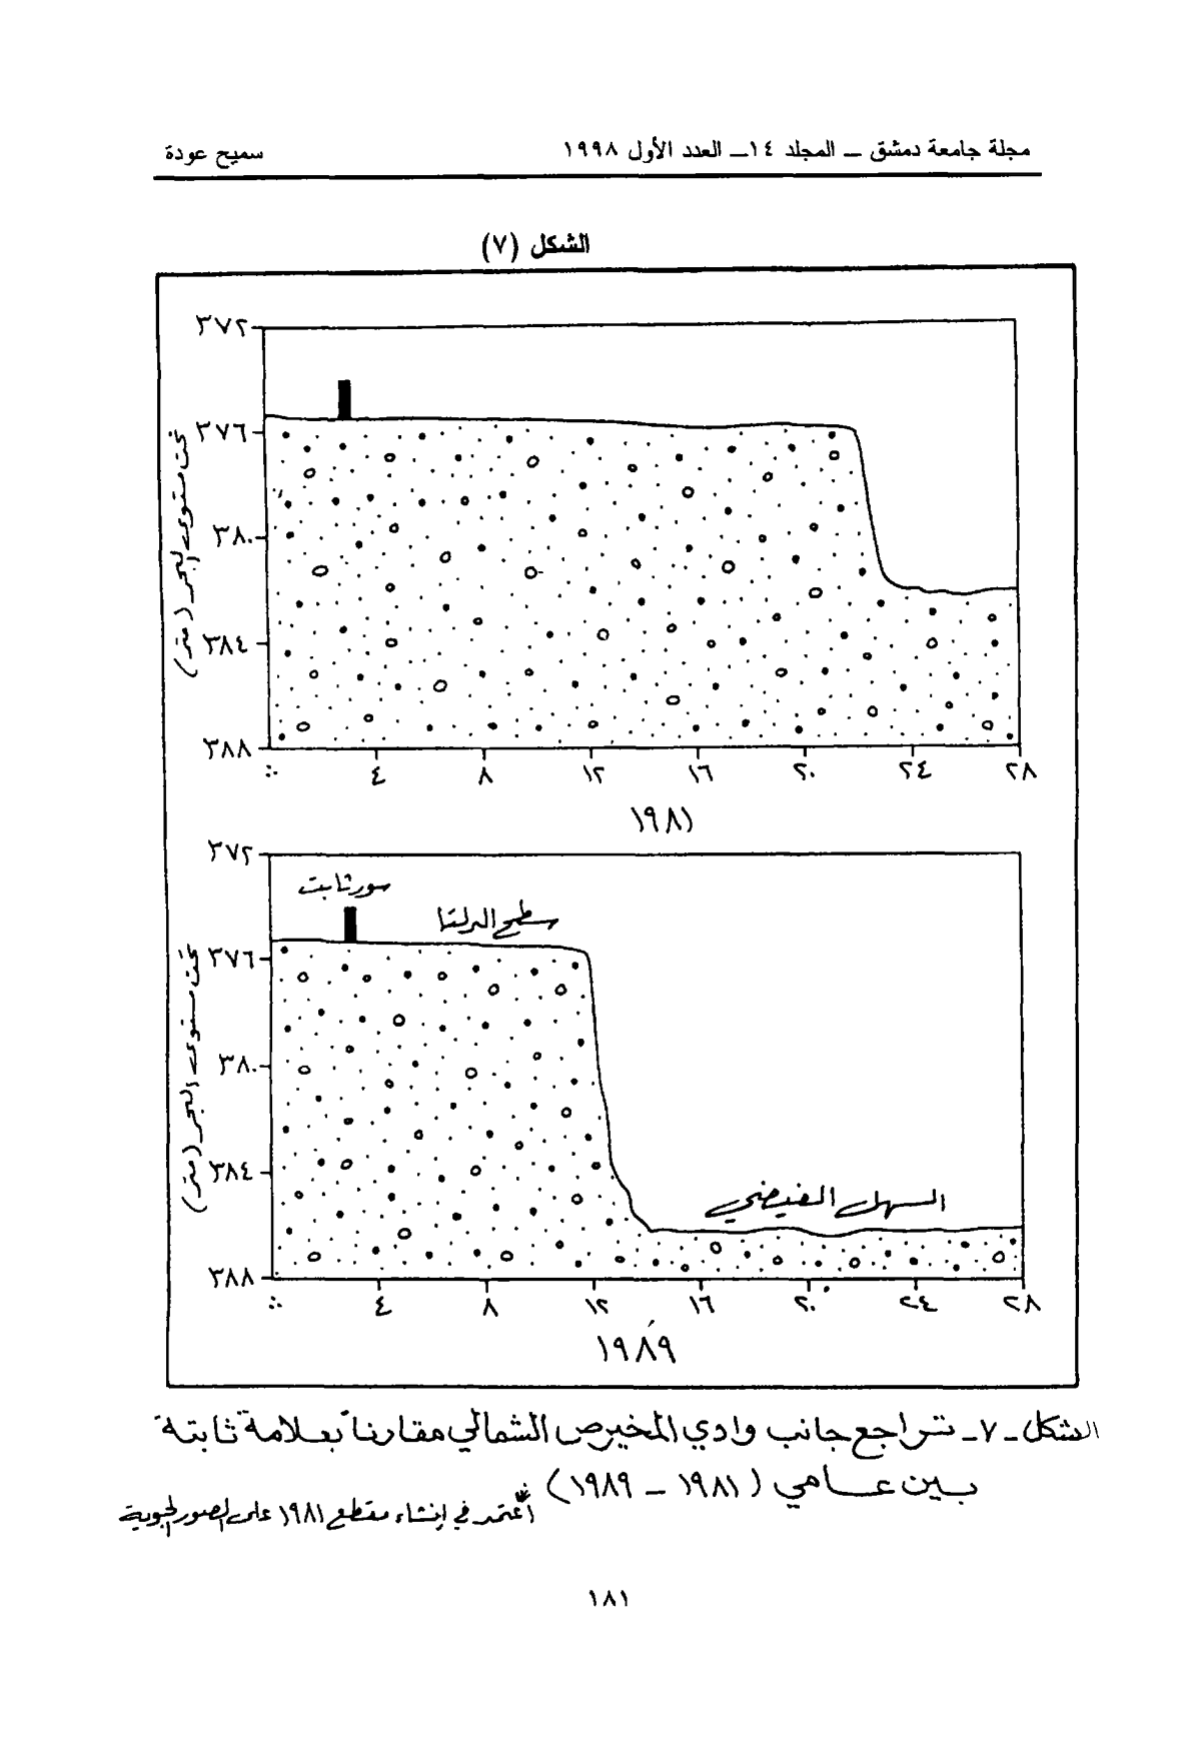 مجلة جامعة دمشق – المجلد ١٤– العدد الأول ١٩٩٨ سميح عودة
الشكل (٧)
٣٧٢
٣٧٦
٣٨٠
٣٨٤
٣٨٨
تحت مستوى البحر (متر)
٠ ٤ ٨ ١٢ ١٦ ٢٠ ٢٤ ٢٨
١٩٨١
٣٧٢
٣٧٦
٣٨٠
٣٨٤
٣٨٨
تحت مستوى البحر (متر)
سور ثابت
سطح الدلتا
السهل الفيضي
٠ ٤ ٨ ١٢ ١٦ ٢٠ ٢٤ ٢٨
١٩٨٩
الشكل ـ ٧ ـ تراجع جانب وادي المخيرص الشمالي مقارناً بعلامة ثابتة
بين عامي (١٩٨١ – ١٩٨٩)
* اُعتمد في إنشاء مقطع ١٩٨١ على الصور الجوية
١٨١